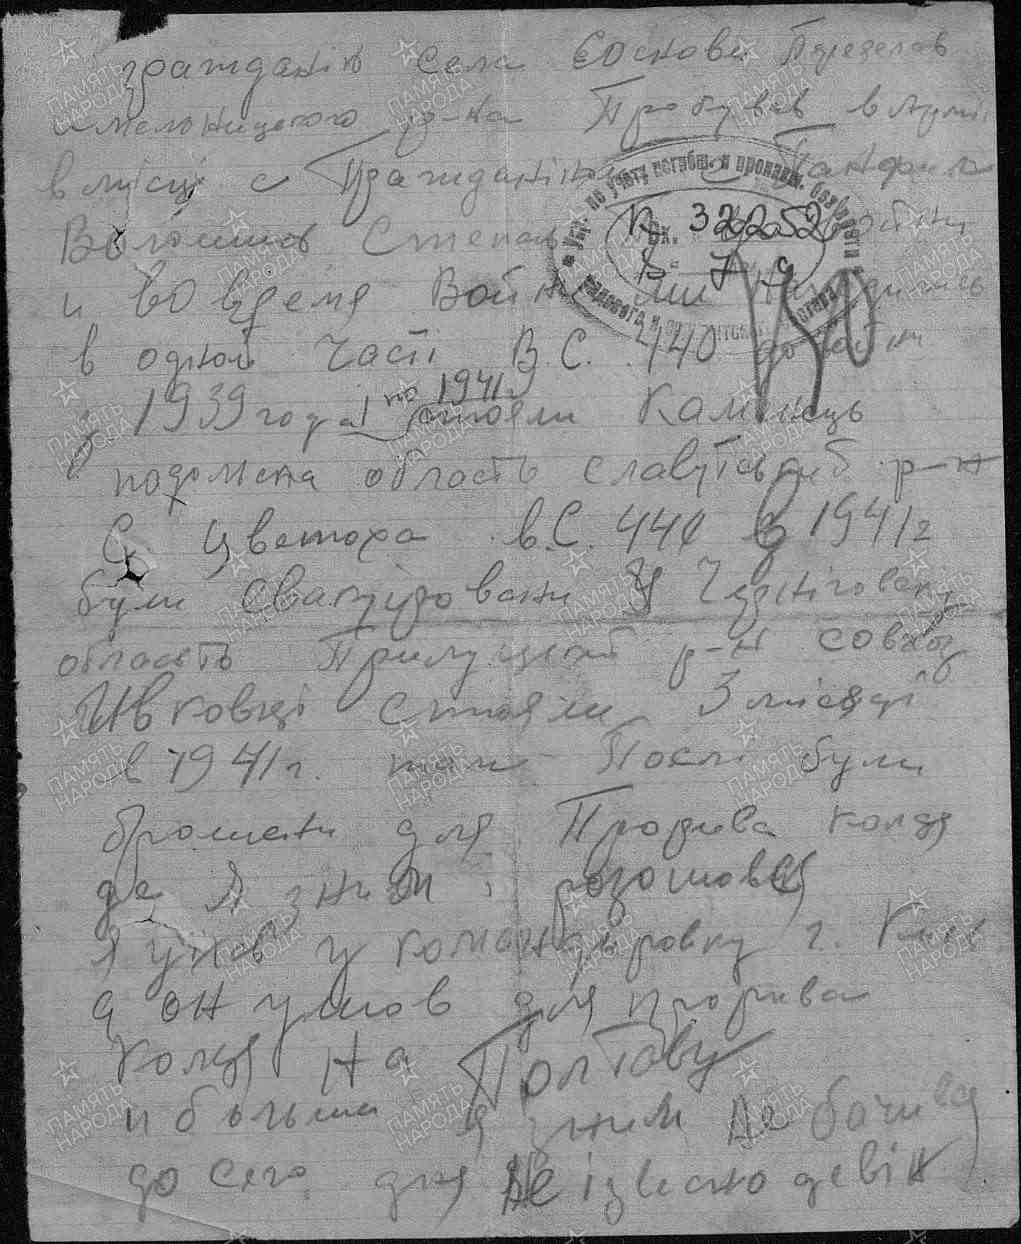 гражданін села Соснова Переяслав
хмельницького р-на Пробував в Армії
в місці с Гражданіном Панфила
Волошин Степан
и во время Войни ми находились
в одной Часті В.С. 440 до войни
з 1939 года по 1941 г стояли Каминець
подолська область славутский р-н
С. Цветоха в.С. 440 в 1941 г
були Евакуіровани У Черніговску
область Прилуцький р-н совхоз
Ивковці стояли 3 місяці
в 1941 г. там После були
брошени для Прорива колця
де Я зним розошовся
Я уихав у командировку г. Киев
а он ушов для прорива
колця на Полтаву
и больше я зним не бачився
до сего дня Не ізвесно де він
Упр. по учету погибш. и пропавш. без вести
рядового и сержантского состава
Вх. 32252